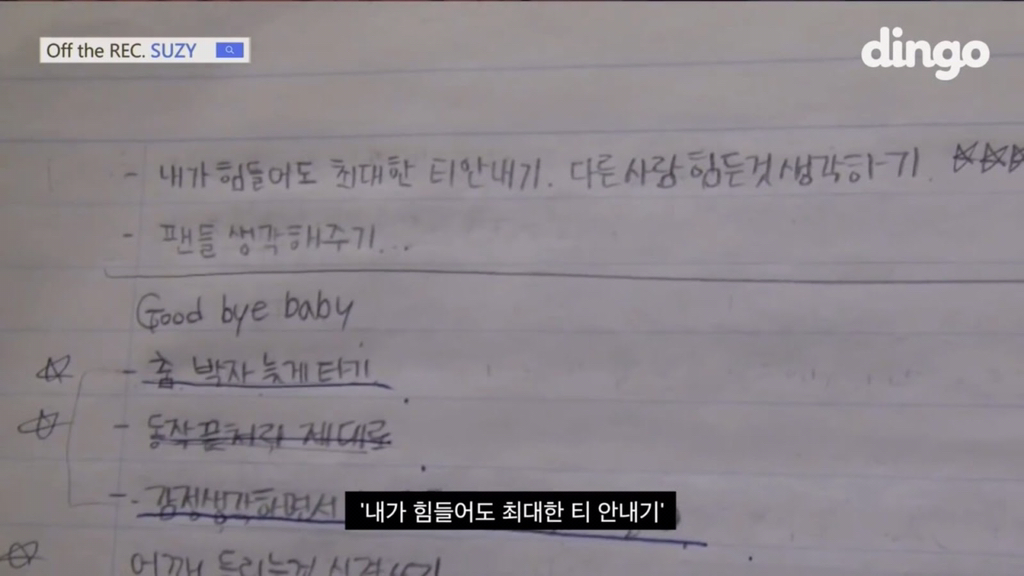 Off the REC. SUZY
dingo
- 내가힘들어도 최대한 티안내기. 다른사람힘든것생각하기. ☆☆☆
- 팬들 생각해주기...
Good bye baby
☆ - 춤 박자늦게타기
☆ - 동작끝처리 제대로
- 감정생각하면서
'내가 힘들어도 최대한 티 안내기'
☆ 어깨